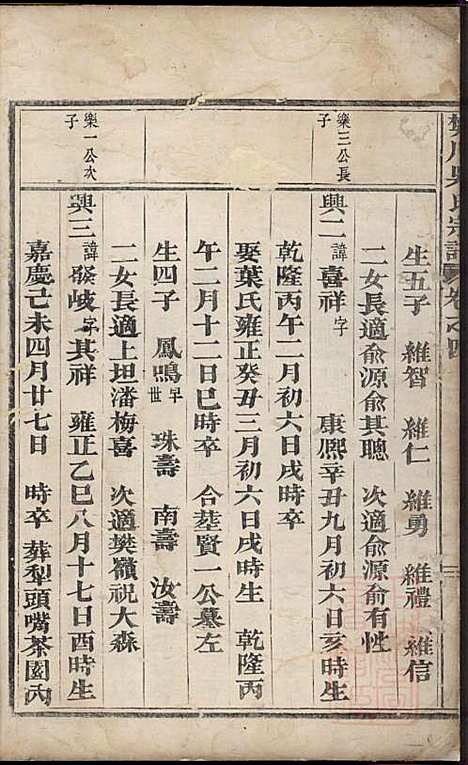 樊川吳氏宗譜 卷之四
生五子 維智 維仁 維勇 維禮 維信
二女長適俞源俞其聰 次適俞源俞有性
樂三公長子
興二諱喜祥字 康熈辛丑九月初六日亥時生
乾隆丙午二月初六日戌時卒
娶葉氏雍正癸丑三月初六日戌時生 乾隆丙
午二月十二日巳時卒 合𦵏賢一公墓左
生四子 鳳鳴早世 珠壽 南壽 汝壽
二女長適上坦潘梅喜 次適樊嶺祝大森
樂一公次子
興三諱發岐字其祥 雍正乙巳八月十七日酉時生
嘉慶己未四月廿七日 時卒 葬犁頭嘴茶園內